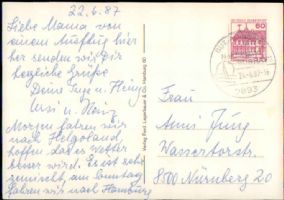 22.6.87
Liebe Mama von
einem Ausflug hier
her senden wir Dir
herzliche Grüße
Deine Inge u. Heinz
Ursi u. Heinz
Morgen fahren wir
nach Helgoland,
hoffen, daß es Wetter
besser wird. Es ist sehr
gemischt, am Sonntag
fahren wir nach Hamburg
Verlag Ferd. Lagerbauer & Co. Hamburg
60
2893
Frau
Anni Jung
Wassertorstr.
8500 Nürnberg 20